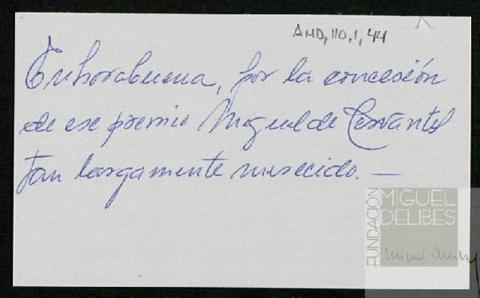 AMD,110,1,44
Enhorabuena, por la concesión
de ese premio Miguel de Cervantes
tan largamente merecido. —
FUNDACIÓN
MIGUEL
DELIBES